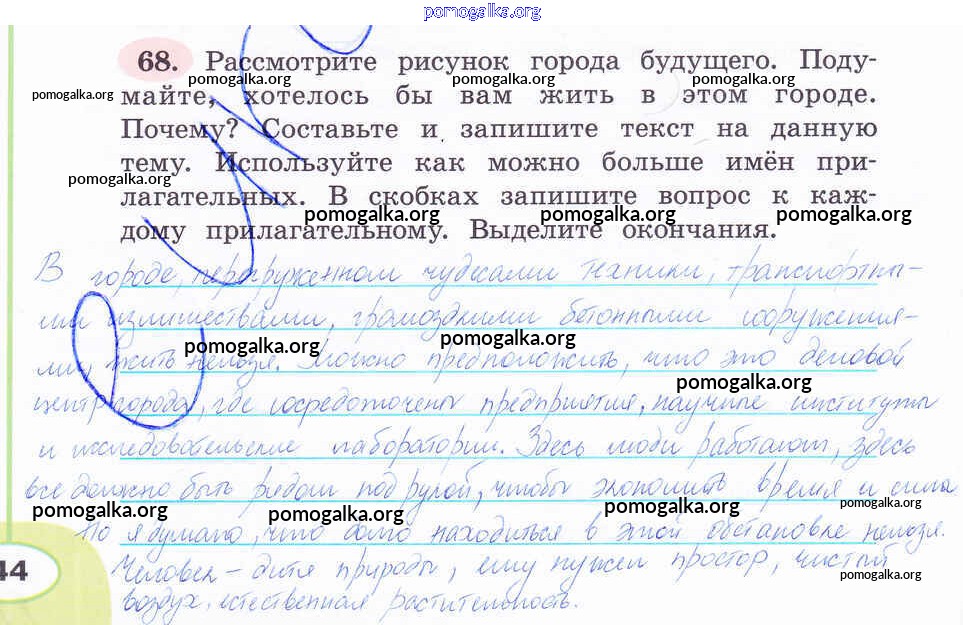 pomogalka.org
68. Рассмотрите рисунок города будущего. Поду-
pomogalka.org pomogalka.org pomogalka.org pomogalka.org
майте, хотелось бы вам жить в этом городе.
Почему? Составьте и запишите текст на данную
тему. Используйте как можно больше имён при-
pomogalka.org
лагательных. В скобках запишите вопрос к каж-
pomogalka.org pomogalka.org pomogalka.org
дому прилагательному. Выделите окончания.
В городе, перегруженном чудесами техники, транспортны-
ми излишествами, громоздкими бетонными сооружения-
pomogalka.org pomogalka.org
ми, жить нельзя. Можно предположить, что это деловой
pomogalka.org
центр города, где сосредоточены предприятия, научные институты
и исследовательские лаборатории. Здесь люди работают, здесь
все должно быть рядом под рукой, чтобы экономить время и силы.
pomogalka.org pomogalka.org pomogalka.org pomogalka.org
Но я думаю, что долго находиться в этой обстановке нельзя.
Человек – дитя природы, ему нужен простор, чистый
pomogalka.org
воздух, естественная растительность.
44